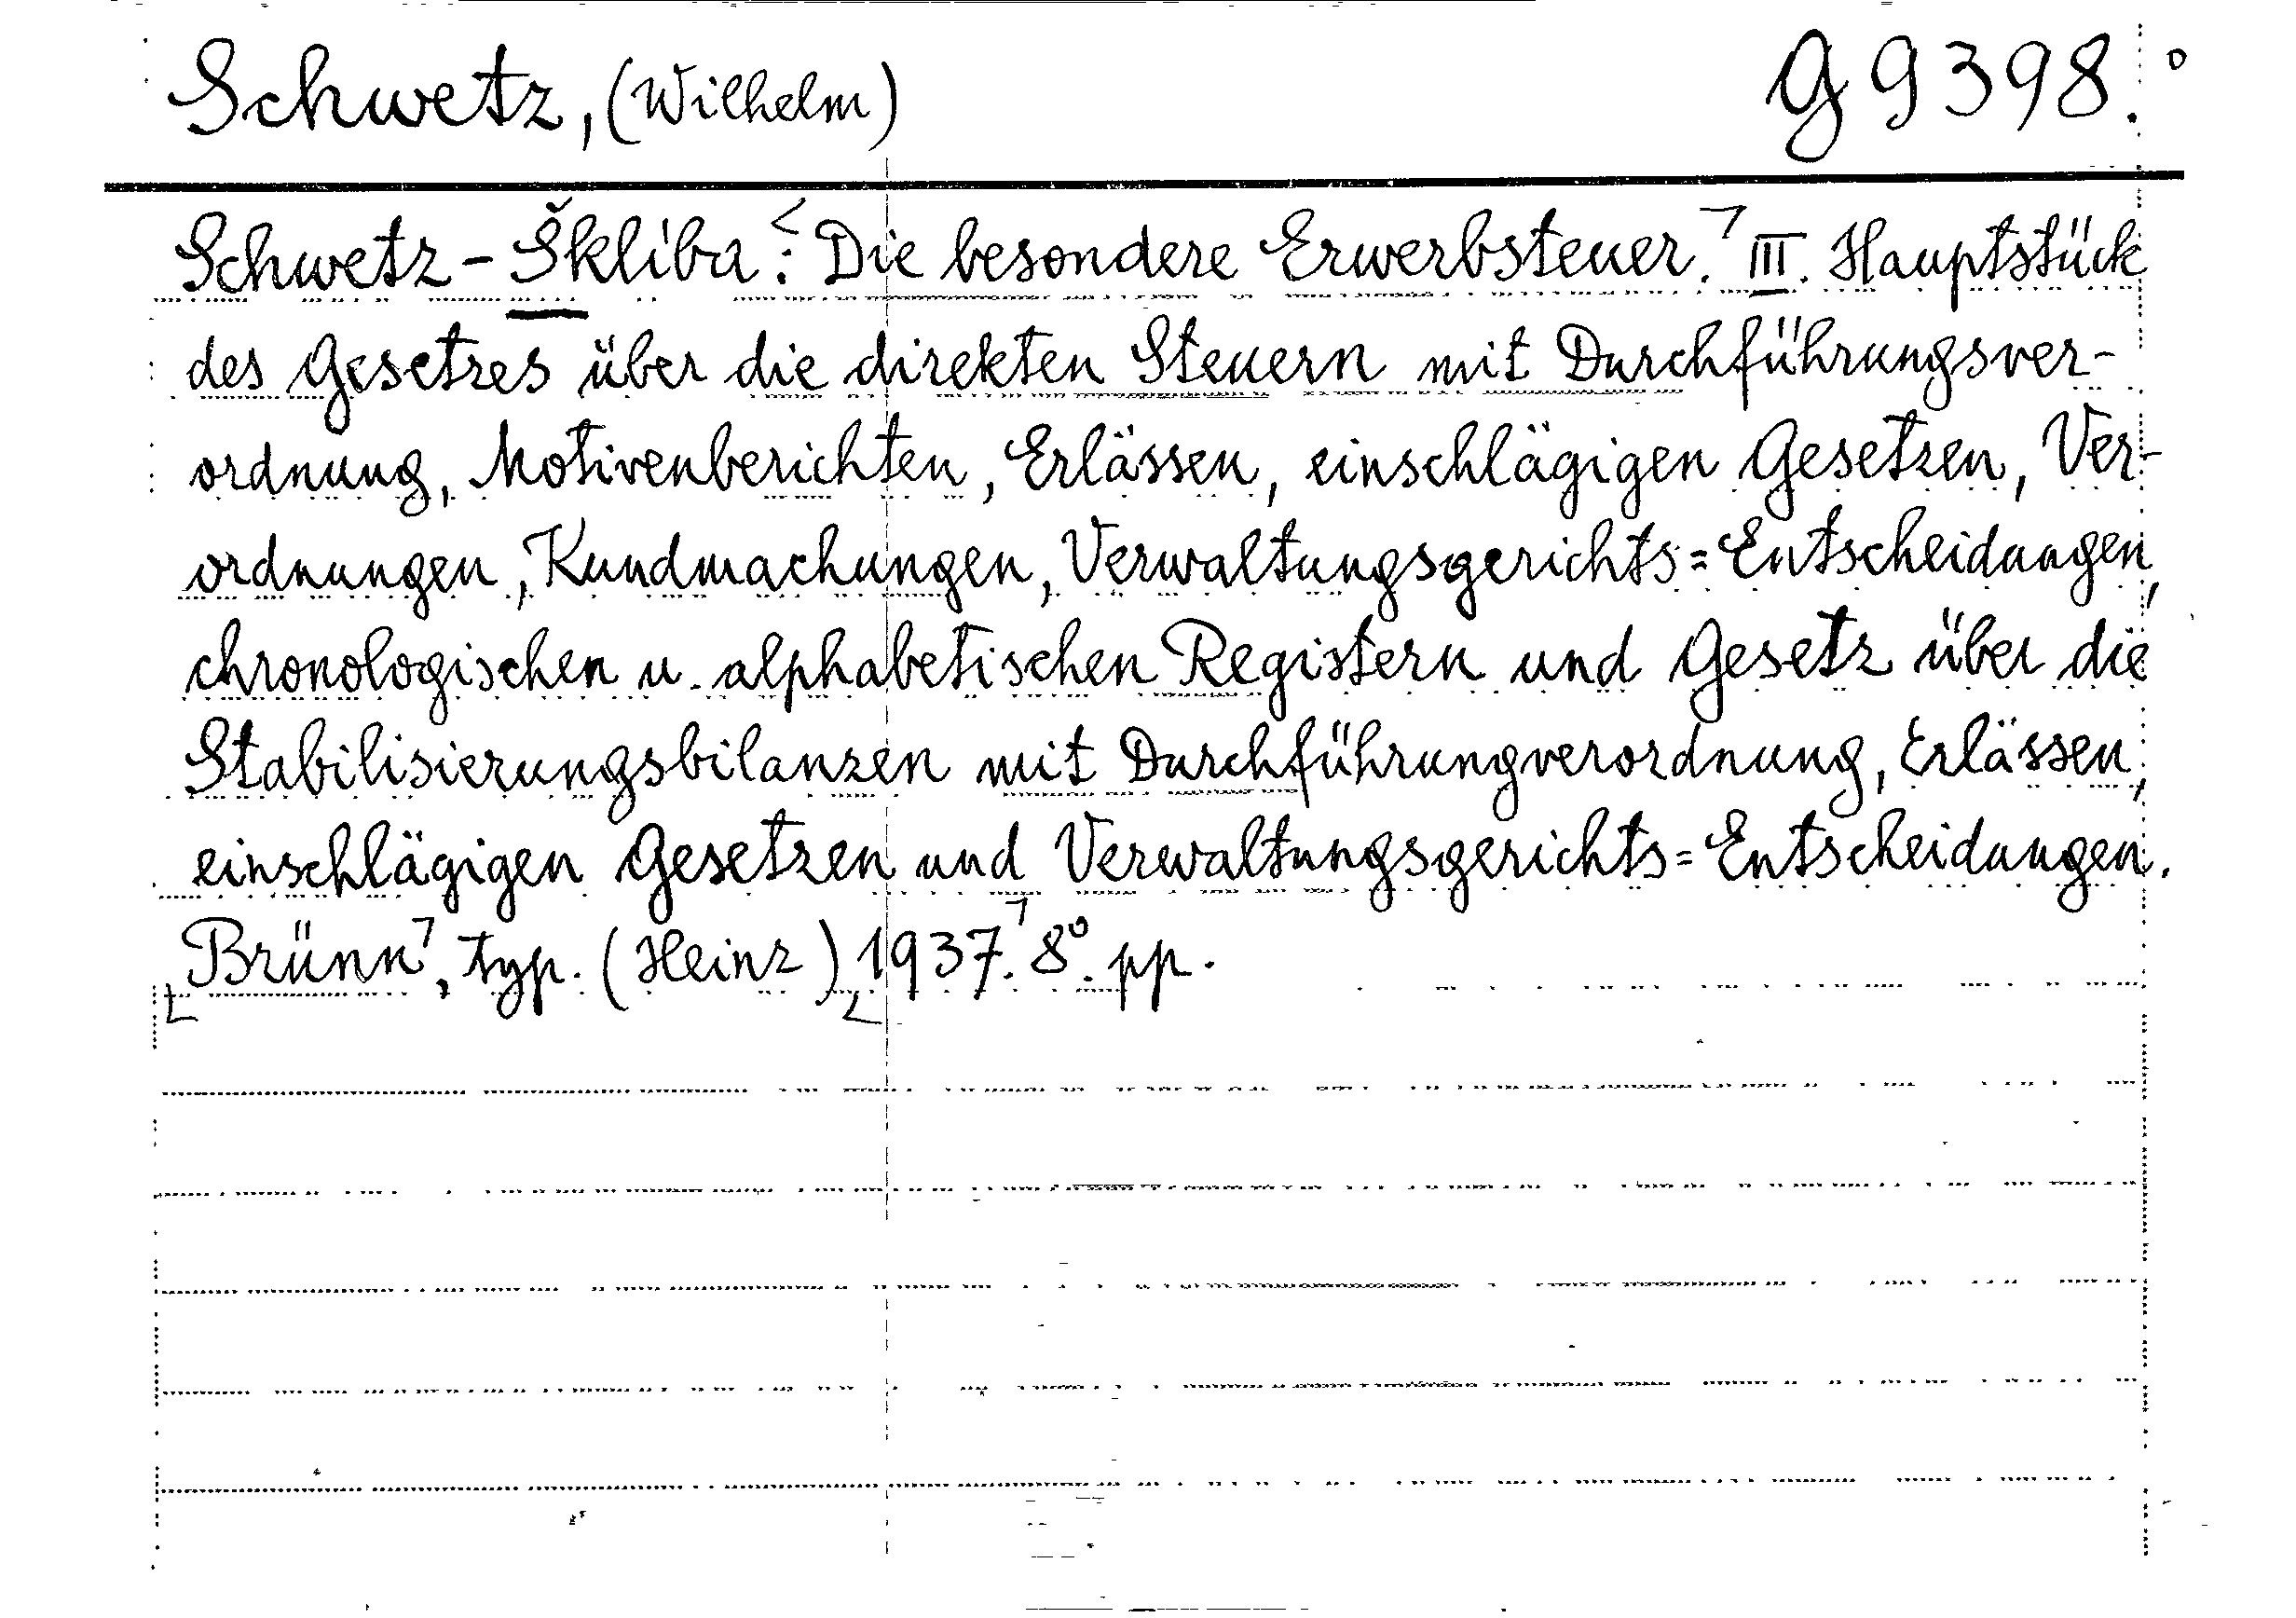 Schwetz, (Wilhelm) G 9398.°
Schwetz-Škliba: Die besondere Erwerbsteuer. III. Hauptstück
des Gesetzes über die direkten Steuern mit Durchführungsver-
ordnung, Motivenberichten, Erlässen, einschlägigen Gesetzen, Ver-
ordnungen, Kundmachungen, Verwaltungsgerichts=Entscheidungen,
chronologischen u. alphabetischen Registern und Gesetz über die
Stabilisierungsbilanzen mit Durchführungverordnung, Erlässen,
einschlägigen Gesetzen und Verwaltungsgerichts=Entscheidungen.
Brünn, typ. (Heinz) 1937. 8°. pp.